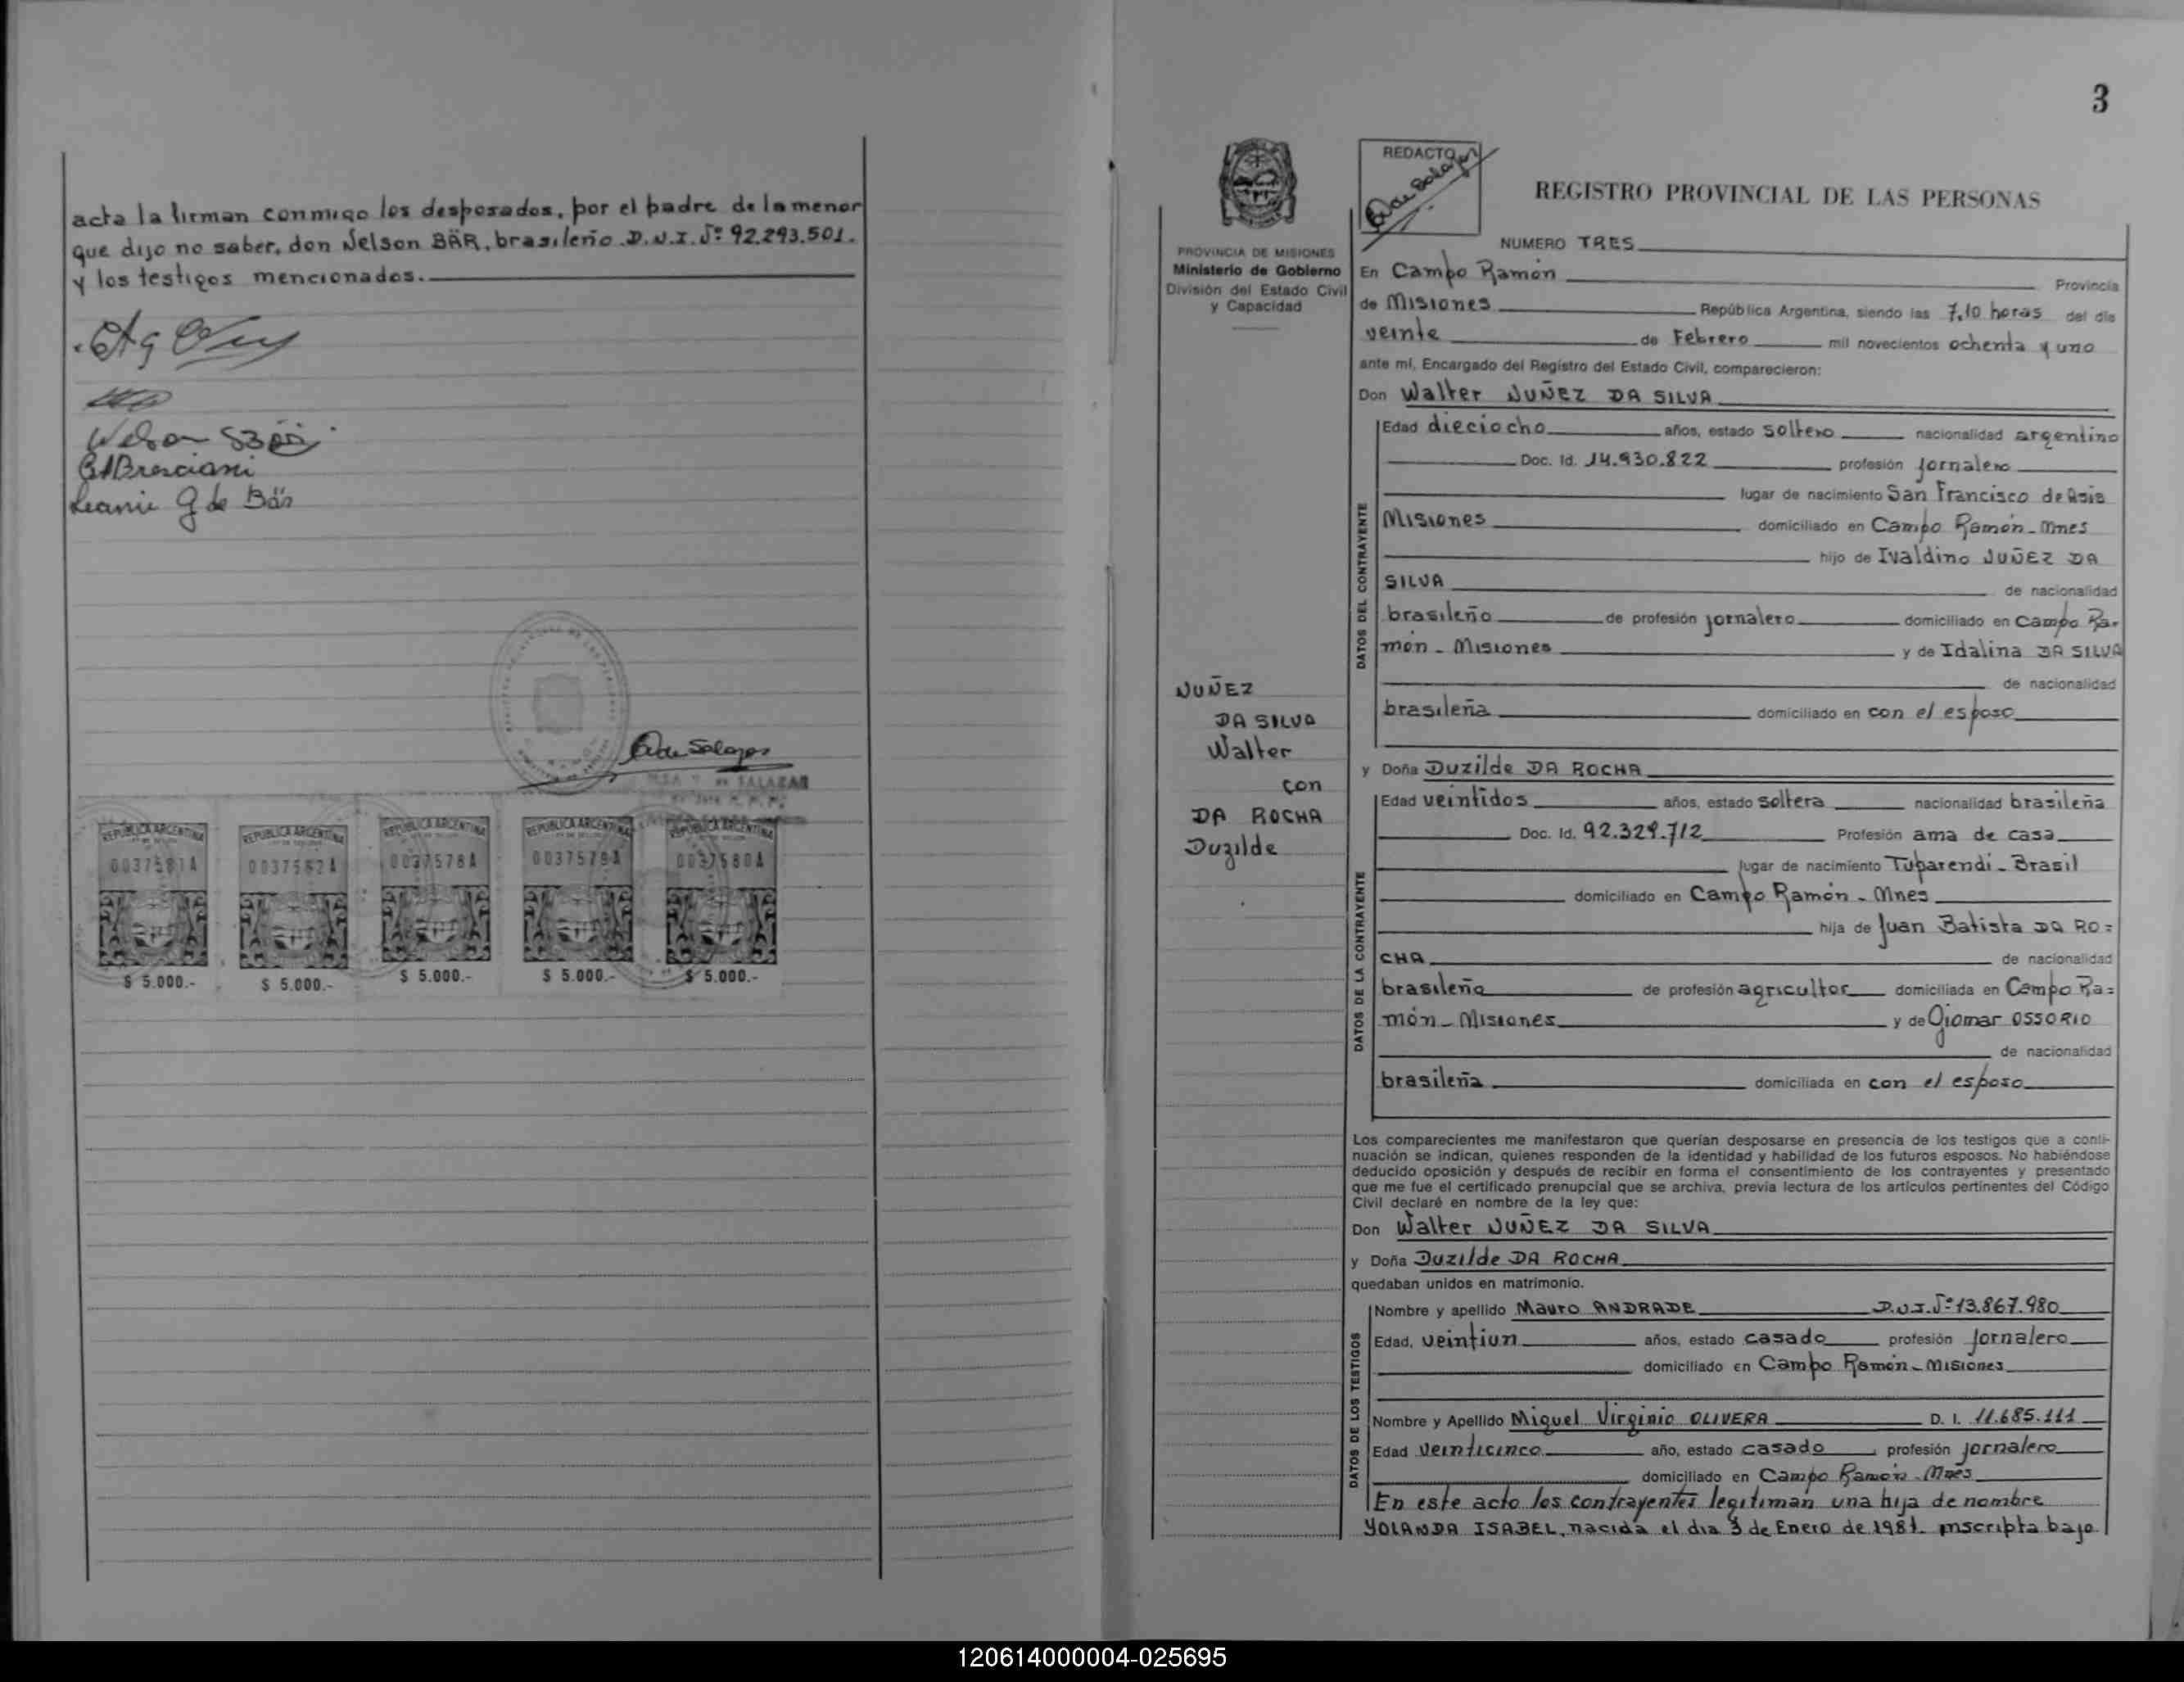 acta la firman conmigo los desposados, por el padre de la menor
que dijo no saber, don Nelson BÄR, brasileño D.N.I. Nº 92.293.501.
y los testigos mencionados.
G.A.Bresciani
Leanir G de Bär
A de Salazar
DE SALAZAR
REPUBLICA ARGENTINA
REPUBLICA ARGENTINA
REPUBLICA ARGENTINA
REPUBLICA ARGENTINA
REPUBLICA ARGENTINA
00375781A
00375782A
0037578A
00375580A
$ 5.000.-
$ 5.000.-
$ 5.000.-
$ 5.000.-
$ 5.000.-
3
PROVINCIA DE MISIONES
Ministerio de Gobierno
División del Estado Civil
y Capacidad
NUÑEZ
DA SILVA
Walter
con
DA ROCHA
Duzilde
REDACTO
REGISTRO PROVINCIAL DE LAS PERSONAS
NUMERO TRES
En Campo Ramón Provincia
de Misiones República Argentina, siendo las 7,10 horas del día
veinte de Febrero mil novecientos ochenta y uno
ante mí, Encargado del Registro del Estado Civil, comparecieron:
Don Walter NUÑEZ DA SILVA
DATOS DEL CONTRAYENTE
Edad dieciocho años, estado soltero nacionalidad argentino
Doc. Id. 14.930.822 profesión jornalero
lugar de nacimiento San Francisco de Asis
Misiones domiciliado en Campo Ramón-Mnes
hijo de Ivaldino NUÑEZ DA
SILVA de nacionalidad
brasileño de profesión jornalero domiciliado en Campo Ra-
món - Misiones y de Idalina DA SILVA
de nacionalidad
brasileña domiciliado en con el esposo
y Doña Duzilde DA ROCHA
DATOS DE LA CONTRAYENTE
Edad veintidos años, estado soltera nacionalidad brasileña
Doc. Id. 92.329.712 Profesión ama de casa
lugar de nacimiento Tuparendí - Brasil
domiciliado en Campo Ramón - Mnes
hija de Juan Batista DA RO=
CHA de nacionalidad
brasileño de profesión agricultor domiciliada en Campo Ra=
món - Misiones y de Giomar OSSORIO
de nacionalidad
brasileña domiciliada en con el esposo
Los comparecientes me manifestaron que querían desposarse en presencia de los testigos que a conti-
nuación se indican, quienes responden de la identidad y habilidad de los futuros esposos. No habiéndose
deducido oposición y después de recibir en forma el consentimiento de los contrayentes y presentado
que me fue el certificado prenupcial que se archiva, previa lectura de los artículos pertinentes del Código
Civil declaré en nombre de la ley que:
Don Walter NUÑEZ DA SILVA
y Doña Duzilde DA ROCHA
quedaban unidos en matrimonio.
DATOS DE LOS TESTIGOS
Nombre y apellido Mauro ANDRADE D.N.I. Nº 13.867.980
Edad, veintiun años, estado casado profesión jornalero
domiciliado en Campo Ramón - Misiones
Nombre y Apellido Miguel Virginio OLIVERA D. I. 11.685.111
Edad veinticinco año, estado casado profesión jornalero
domiciliado en Campo Ramón - Mnes
En este acto los contrayentes legitiman una hija de nombre
YOLANDA ISABEL, nacida el día 3 de Enero de 1981. inscripta bajo
120614000004-025695